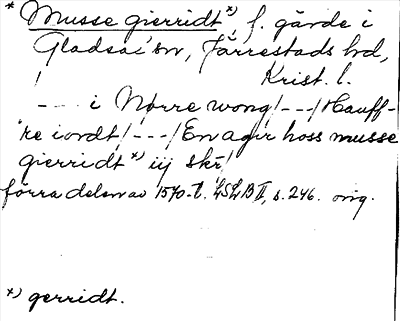 * Musse gierridt *), f. gärde i
Gladsax sn, Järrestads hd,
Krist. l.
--- i Nørre wong/---/Hauff-
re iordt/---/En agir hoss musse
gierridt *) iij skr/
förra delen av 1570-t. LSLB II, s. 246. orig.
*) gerridt.